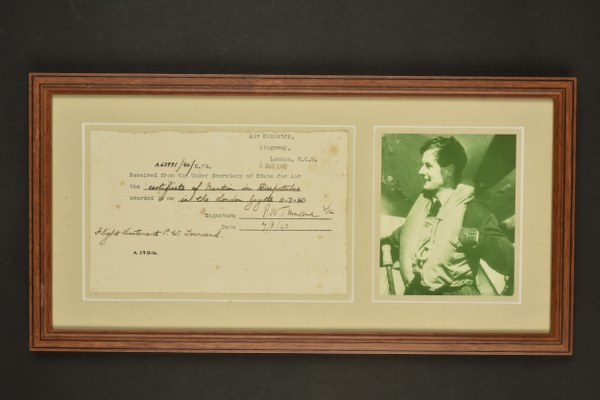 Air Ministry,
Kingsway,
London, W.C.2.
A68991/40/S.7d.
Received from the Under Secretary of State for Air
the certificate of Mention in Despatches
awarded to me in the London Gazette 11-7-40
Signature P.W. Townsend
Date
Flight Lieutenant P. W. Townsend.